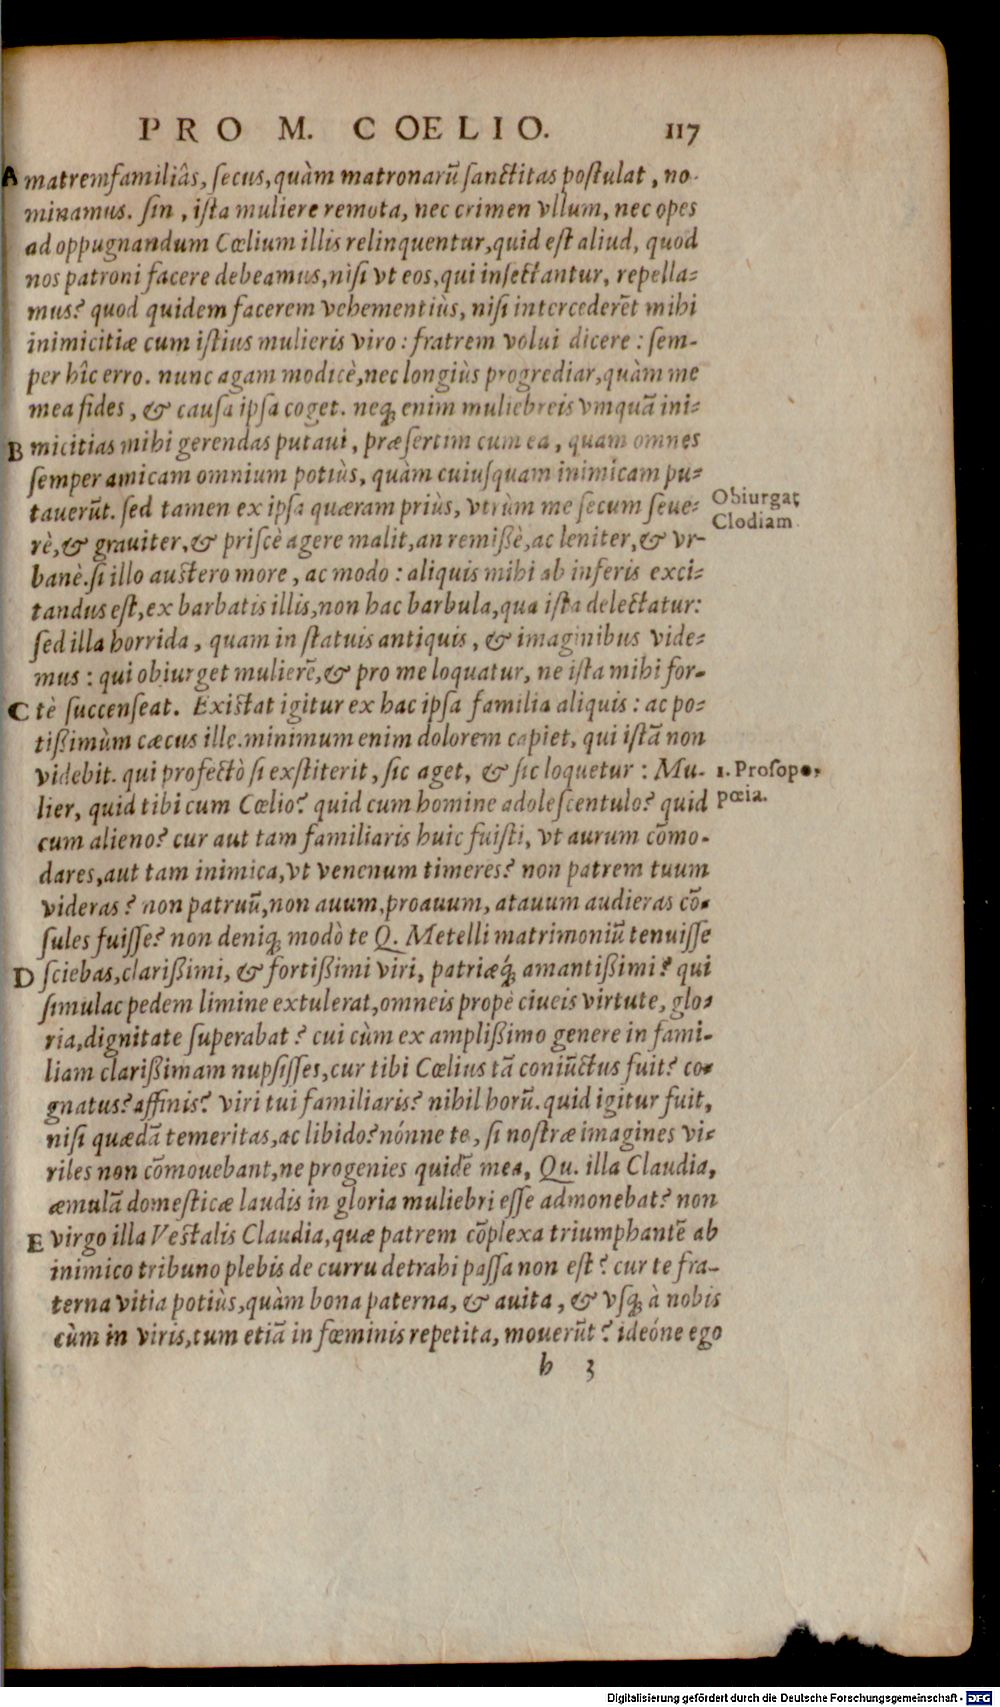 PRO M. COELIO. 117
A matremfamiliâs, secus, quàm matronarũ sanctitas postulat, no-
minamus. sin, ista muliere remota, nec crimen vllum, nec opes
ad oppugnandum Cœlium illis relinquentur, quid est aliud, quod
nos patroni facere debeamus, nisi vt eos, qui insectantur, repella-
mus? quod quidem facerem vehementiùs, nisi intercederẽt mihi
inimicitiæ cum istius mulieris viro: fratrem volui dicere: sem-
per hîc erro. nunc agam modicè, nec longiùs progrediar, quàm me
mea fides, & causa ipsa coget. neq; enim muliebreis vmquã ini-
B micitias mihi gerendas putaui, præsertim cum ea, quam omnes
semper amicam omnium potiùs, quàm cuiusquam inimicam pu-
tauerũt. sed tamen ex ipsa quæram priùs, vtrùm me secum seue-
Obiurgat
Clodiam
rè, & grauiter, & priscè agere malit, an remißè, ac leniter, & vr-
banè. si illo austero more, ac modo: aliquis mihi ab inferis exci-
tandus est, ex barbatis illis, non hac barbula, qua ista delectatur:
sed illa horrida, quam in statuis antiquis, & imaginibus vide-
mus: qui obiurget mulierẽ, & pro me loquatur, ne ista mihi for-
C tè succenseat. Existat igitur ex hac ipsa familia aliquis: ac po-
tißimùm cæcus ille. minimum enim dolorem capiet, qui istã non
videbit. qui profectò si exstiterit, sic aget, & sic loquetur: Mu-
1. Prosopo-
pœia.
lier, quid tibi cum Cœlio? quid cum homine adolescentulo? quid
cum alieno? cur aut tam familiaris huic fuisti, vt aurum cõmo-
dares, aut tam inimica, vt venenum timeres? non patrem tuum
videras? non patruũ, non auum, proauum, atauum audieras cõ-
sules fuisse? non deniq; modò te Q. Metelli matrimoniũ tenuisse
D sciebas, clarißimi, & fortißimi viri, patriæq́; amantißimi? qui
simulac pedem limine extulerat, omneis propè ciueis virtute, glo-
ria, dignitate superabat? cui cùm ex amplißimo genere in fami-
liam clarißimam nupsisses, cur tibi Cœlius tã coniũctus fuit? co-
gnatus? affinis? viri tui familiaris? nihil horũ. quid igitur fuit,
nisi quædã temeritas, ac libido? nónne te, si nostræ imagines vi-
riles non cõmouebant, ne progenies quidẽ mea, Qu. illa Claudia,
æmulã domesticæ laudis in gloria muliebri esse admonebat? non
E virgo illa Vestalis Claudia, quæ patrem cõplexa triumphantẽ ab
inimico tribuno plebis de curru detrahi passa non est? cur te fra-
terna vitia potiùs, quàm bona paterna, & auita, & vsq; à nobis
cùm in viris, tum etiã in fœminis repetita, mouerũt? ideóne ego
h 3
Digitalisierung gefördert durch die Deutsche Forschungsgemeinschaft - DFG